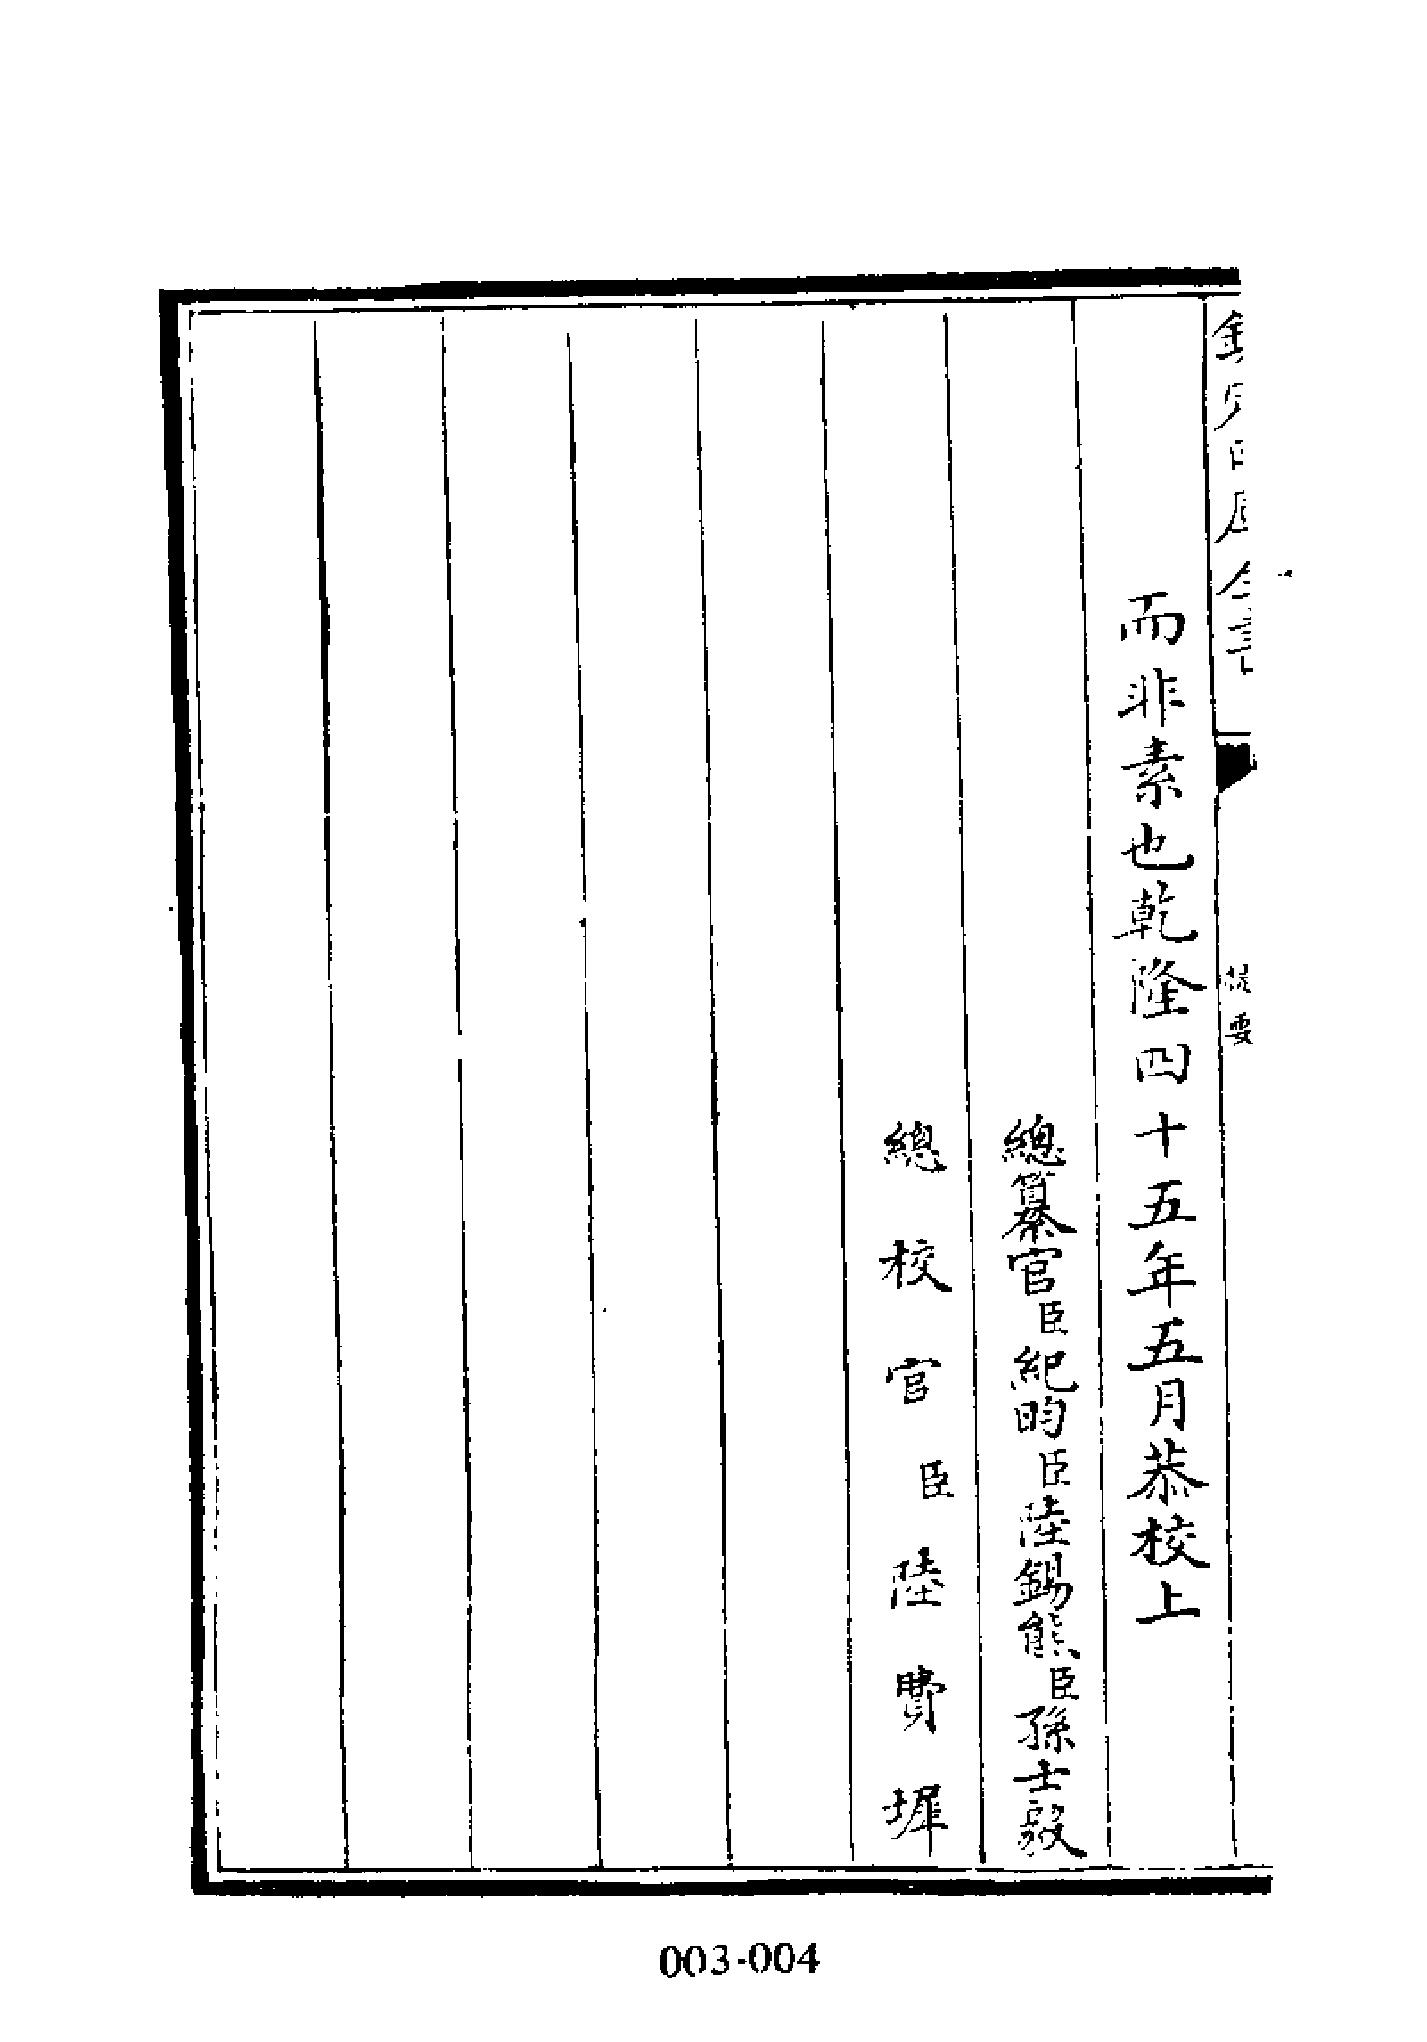 欽定四庫全書
提要
而非素也乾隆四十五年五月恭校上
總纂官臣紀昀臣陸錫熊臣孫士毅
總校官臣陸費墀
003-004